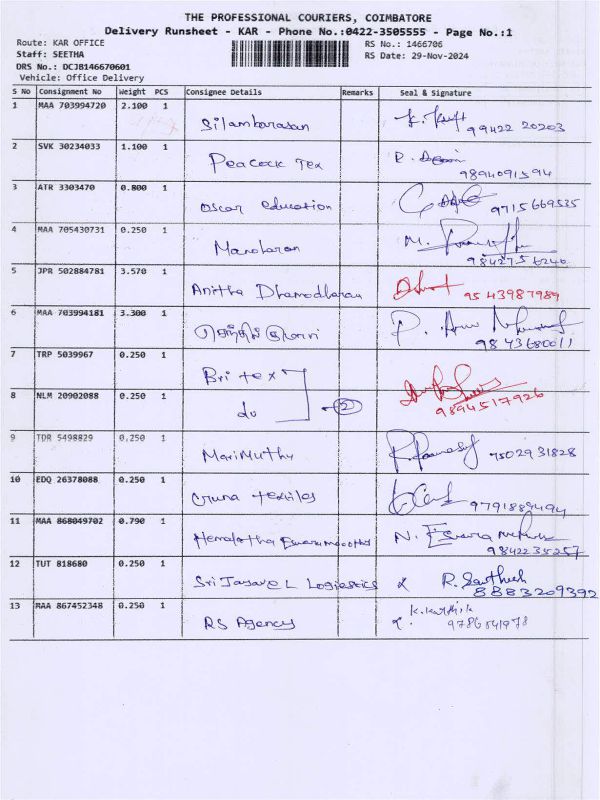 THE PROFESSIONAL COURIERS, COIMBATORE
Delivery Runsheet - KAR - Phone No.:0422-3505555 - Page No.:1
Route: KAR OFFICE RS No.: 1466706
Staff: SEETHA RS Date: 29-Nov-2024
DRS No.: DCJB146670601
Vehicle: Office Delivery
S No Consignment No Weight PCS Consignee Details Remarks Seal & Signature
1 MAA 703994720 2.100 1 Silambarasan 99422 20203
2 SVK 30234033 1.100 1 Peacock Tex 9894091594
3 ATR 3303470 0.800 1 oscar education 9715669535
4 MAA 705430731 0.250 1 Manoharan M. 9842756246
5 JPR 502884781 3.570 1 Anitha Dhamodharan 9543987989
6 MAA 703994181 3.300 1 P. 9843680011
7 TRP 5039967 0.250 1 Bri tex
8 NLM 20902088 0.250 1 do 2 9894517926
9 TDR 5498829 0.250 1 MariMuthu 7502931828
10 EDQ 26378088 0.250 1 textiles 9791889494
11 MAA 868049702 0.790 1 N. 9842235257
12 TUT 818680 0.250 1 Sri Logistics R. Santhosh 8883209392
13 MAA 867452348 0.250 1 RS Agency K. Karthik 9786541978